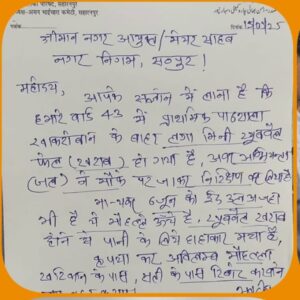 परिषद, सहारनपुर
अमन भाईचारा कमेटी, सहारनपुर
दिनांक 12/05/25
श्रीमान नगर आयुक्त/मेयर साहब
नगर निगम, सहारनपुर!
महोदय,
आपके संज्ञान में लाना है कि
हमारे वार्ड 43 में प्राथमिक पाठशाला
के बाहर लगा मिनी ट्यूबवेल
फेल (खराब) हो गया है, अवर अभियन्ता
(जल) ने मौके पर जाकर निरिक्षण कर लिया है
7 जून को ईद उल अजहा
भी है ये मौहल्ले ऊँचे है, ट्यूबवेल खराब
होने से पानी के लिये हाहाकार मचा है,
कृपया कर अविलम्ब मौहल्ला
के पास, के पास रिबोर कराने